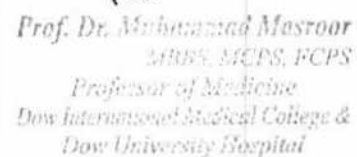 Prof. Dr. Muhammad Masroor
MBBS, MCPS, FCPS
Professor of Medicine
Dow International Medical College &
Dow University Hospital